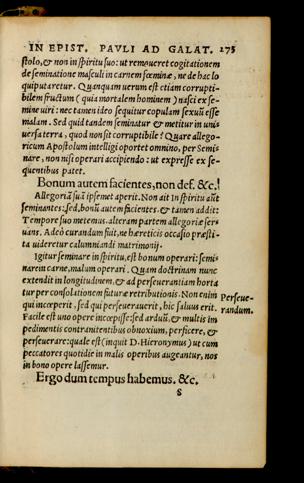 IN EPIST. PAVLI AD GALAT. 275
stolo, & non in spiritu suo: ut remoueret cogitationem
de seminatione masculi in carnem fœminæ, ne de hac lo
qui putaretur. Quanquam uerum est etiam corrupti-
bilem fructum (quia mortalem hominem) nasci ex se-
mine uiri: nec tamen ideo sequitur copulam sexuū esse
malam. Sed quid tandem seminatur & metitur in uni
uersa terra, quod non sit corruptibile? Quare allego-
ricum Apostolum intelligi oportet omnino, per Semi
nare, non nisi operari accipiendo: ut expresse ex se-
quentibus patet.
Bonum autem facientes, non def. &c.
Allegoriā suā ipsemet aperit. Non ait In spiritu aūt
seminantes: sed, bonū autem facientes, & tamen addit:
Tempore suo metemus. alteram partem allegoriæ ser
uans. Adeò curandum fuit, ne hæreticis occasio præsti-
ta uideretur calumniandi matrimonij.
Igitur seminare in spiritu, est bonum operari: semi
narem carne, malum operari. Quam doctrinam nunc
extendit in longitudinem, & ad perseuerantiam horta
tur per consolationem futuræ retributionis. Non enim
qui inceperit, sed qui perseuerauerit, hic saluus erit.
Perseue-
randum.
Facile est uno opere incepisse: sed arduū, & multis im
pedimentis contranitentibus obnoxium, perficere, &
perseuerare: quale est (inquit D. Hieronymus) ut cum
peccatores quotidie in malis operibus augeantur, nos
in bono opere lassemur.
Ergo dum tempus habemus. &c.
S